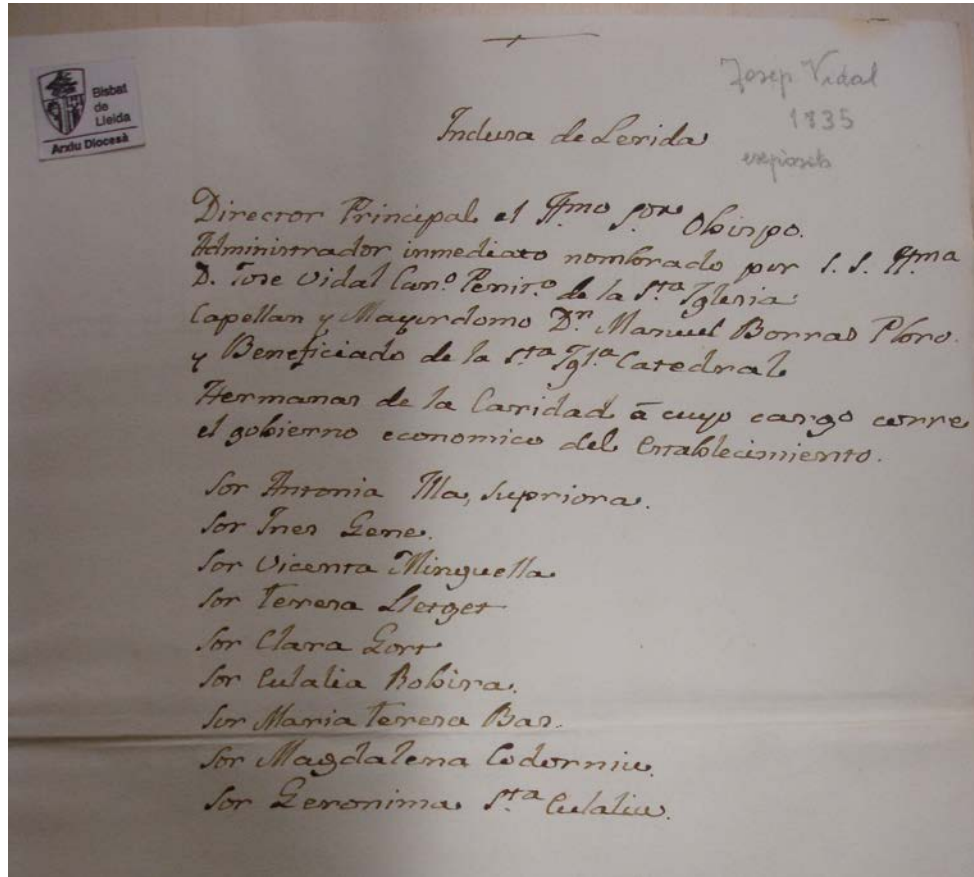 Bisbat
de
Lleida
Arxiu Diocesà
Josep Vidal
1835
expòsits
Inclusa de Lerida
Director Principal el Yllmo Sor Obispo.
Administrador inmediato nombrado por S. S. Yllma
D. Jose Vidal Can.º Penit.º de la Sta Iglesia
Capellan y Mayordomo Dn. Manuel Borras Pbro.
y Beneficiado de la Sta Igl.a Catedral
Hermanas de la Caridad á cuyo cargo corre
el gobierno economico del Establecimiento.
Sor Antonia Illa, Supriora.
Sor Ines Gene.
Sor Vicenta Minguella
Sor Teresa Lletget
Sor Clara Gort
Sor Eulalia Robira.
Sor Maria Teresa Bas.
Sor Magdalena Codorniu.
Sor Geronima Sta Eulalia.